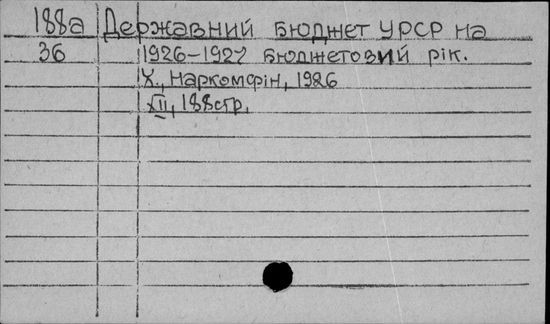 188а Державний бюджет УРСР на
36 1926-1927 бюджетовий рік.
Х., Наркомфін, 1926
XII, 188стр.